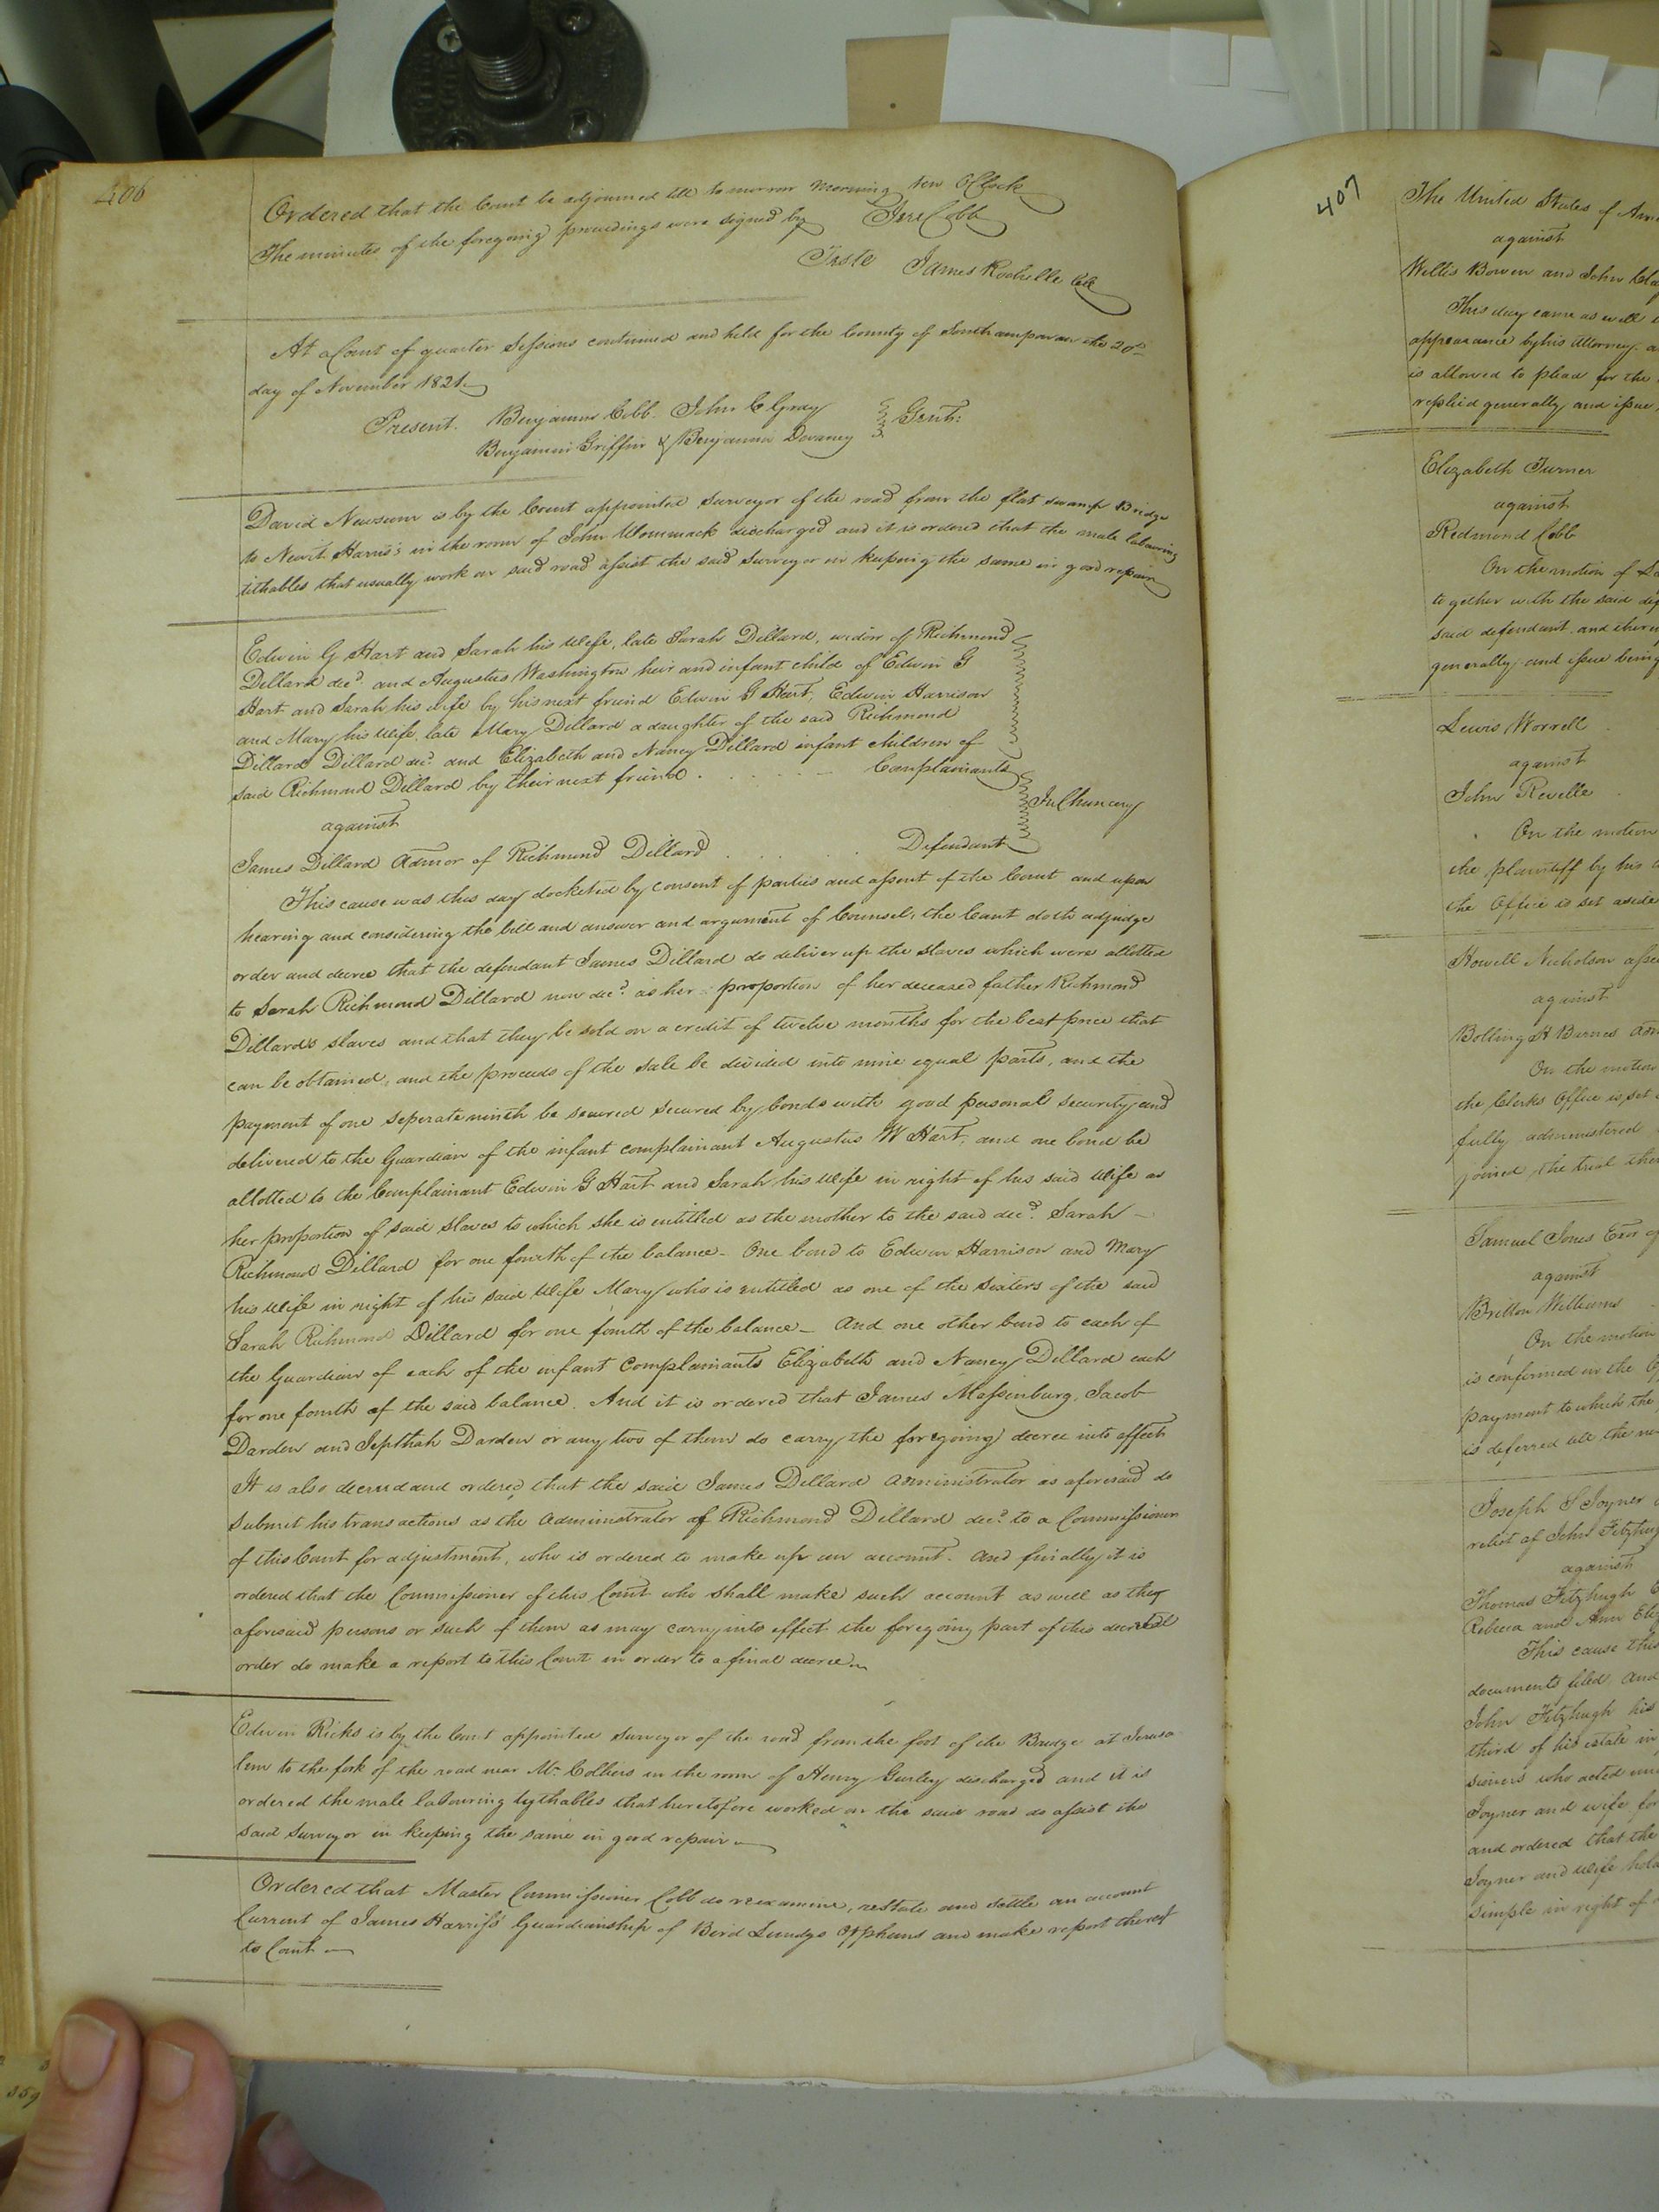 406
Ordered that the Court be adjourned till to morrow Morning ten OClock
The minutes of the foregoing proceedings were signed by Jere Cobb
Teste James Rochelle Clk
At a Court of quarter Sessions continued and held for the County of Southampton on the 20th
day of November 1821.
Present. Benjamin Cobb. John C Gray
Benjamin Griffin & Benjamin Devaney Gent:
David Newsum is by the Court appointed Surveyor of the road from the flat swamp Bridge
to Newit Harris's in the room of John Wommack discharged and it is ordered that the male labouring
tithables that usually work on said road assist the said Surveyor in keeping the same in good repair
Edwin G Hart and Sarah his Wife, late Sarah Dillard, widow of Richmond
Dillard decd. and Augustus Washington heir and infant child of Edwin G
Hart and Sarah his wife by his next friend Edwin G Hart, Edwin Harrison
and Mary his Wife, late Mary Dillard a daughter of the said Richmond
Dillard Dillard decd. and Elizabeth and Nancy Dillard infant children of
said Richmond Dillard by their next friend . . . . . Complainants
against
In Chancery
James Dillard Admor of Richmond Dillard . . . . Defendant
This cause was this day docketed by consent of parties and assent of the Court and upon
hearing and considering the bill and answer and argument of Counsel, the Court doth adjudge
order and decree that the defendant James Dillard do deliver up the slaves which were allotted
to Sarah Richmond Dillard now decd. as her proportion of her deceased father Richmond
Dillard's slaves and that they be sold on a credit of twelve months for the best price that
can be obtained, and the proceeds of the sale be divided into nine equal parts, and the
payment of one seperate ninth be secured secured by bonds with good personal security and
delivered to the Guardian of the infant complainant Augustus W Hart, and one bond be
allotted to the Complainant Edwin G Hart and Sarah his Wife in right of his said Wife as
her proportion of said slaves to which she is entitled as the mother to the said decd. Sarah
Richmond Dillard for one fourth of the balance - One bond to Edwin Harrison and Mary
his Wife in right of his said Wife Mary who is entitled as one of the sisters of the said
Sarah Richmond Dillard for one fourth of the balance - And one other bond to each of
the Guardian of each of the infant Complainants Elizabeth and Nancy Dillard each
for one fourth of the said balance. And it is ordered that James Massenburg, Jacob
Darden and Jepthah Darden or any two of them do carry the foregoing decree into effect
It is also decreed and ordered that the said James Dillard Administrator as aforesaid do
submit his transactions as the Administrator of Richmond Dillard decd. to a Commissioner
of this Court for adjustment, who is ordered to make up an account. And finally it is
ordered that the Commissioner of this Court who shall make such account as well as the
aforesaid persons or such of them as may carry into effect the foregoing part of this decretal
order do make a report to this Court in order to a final decree
Edwin Ricks is by the Court appointed Surveyor of the road from the foot of the Bridge at Jerusa
lem to the fork of the road near Mr. Colliers in the room of Henry Gurley discharged and it is
ordered the male labouring tythables that heretofore worked on the said road do assist the
said Surveyor in keeping the same in good repair
Ordered that Master Commissioner Cobb do reexamine, restate and settle an account
Current of James Harriss' Guardianship of Bird Lundys Orphans and make report thereof
to Court
407
The United States of Am
against
Willis Bowen and John Cla
This day came as well
appearance by his Attorney. a
is allowed to plead for the
replied generally and issue
Elizabeth Turner
against
Redmond Cobb
On the motion of
together with the said def
said defendant. and there
generally and issue being
Lewis Worrell
against
John Reville
On the motion
the plaintiff by his
the Office is set aside
Howell Nicholson asse
against
Bolling H Barnes adm
On the motion
the Clerks Office is set
fully administered
joined, the trial ther
Samuel Jones Exor of
against
Britton Williams
On the motion
is confirmed in the Of
payment to which the
is deferred till the ne
Joseph S Joyner
relict of John Fitzhug
against
Thomas Fitzhugh
Rebecca and Ann Eli
This cause this
documents filed. And
John Fitzhugh his
third of his estate in
sioners who acted un
Joyner and wife for
and ordered that the
Joyner and wife hold
simple in right of
359